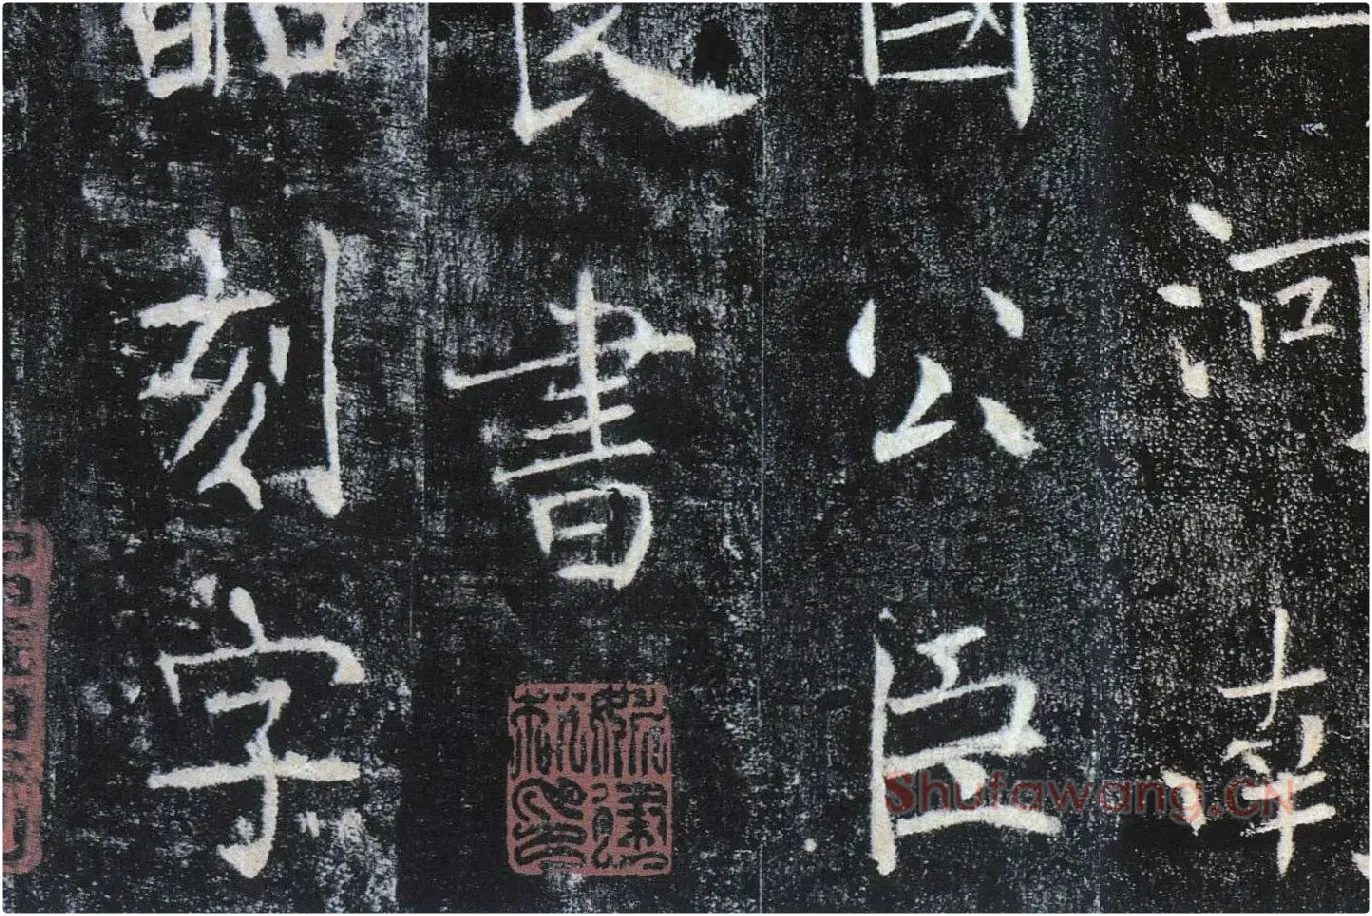 河南
國公臣
良書
韶刻字
Shufawang.CN